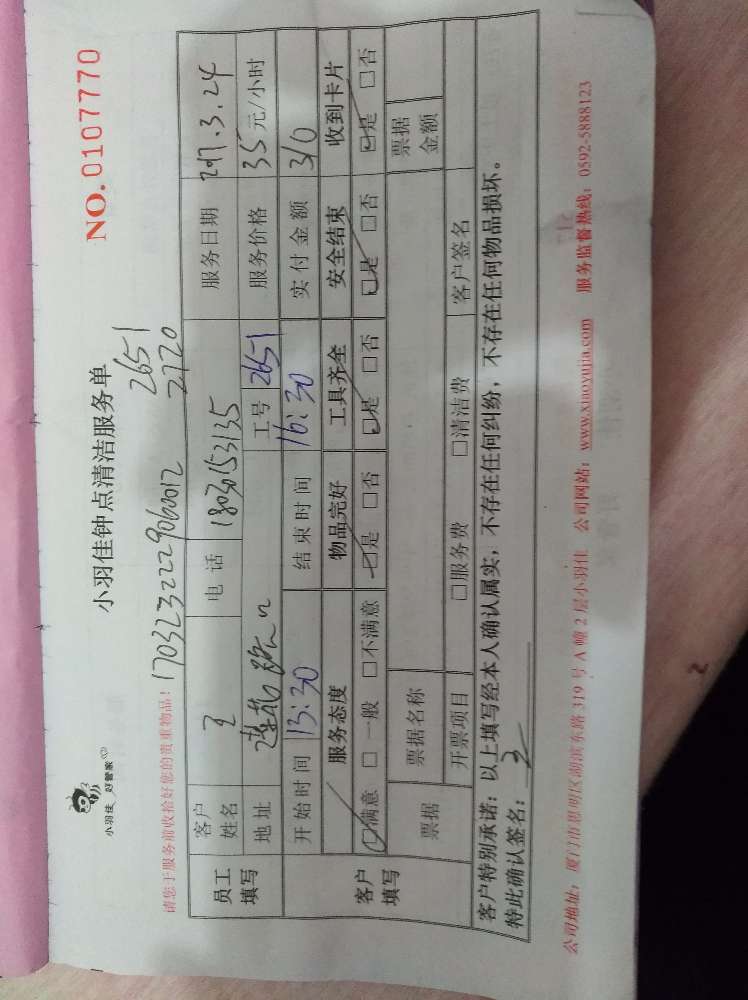 小羽佳 好管家
NO.0107770
小羽佳钟点清洁服务单
请您于服务前收拾好您的贵重物品！ 2651
1703232229060012 2720
员工填写 客户姓名 电话 18030153135 服务日期 2017.3.24
地址 工号 2651 服务价格 35元/小时
开始时间 13:30 结束时间 16:30 实付金额 310
客户填写 服务态度 物品完好 工具齐全 安全结束 收到卡片
☑满意 □一般 □不满意 ☑是 □否 ☑是 □否 ☑是 □否 ☑是 □否
票据 票据名称 票据金额
开票项目 □服务费 □清洁费 客户签名
客户特别承诺：以上填写经本人确认属实，不存在任何纠纷，不存在任何物品损坏。
特此确认签名：
公司地址：厦门市思明区湖滨东路319号A幢2层小羽佳 公司网站：www.xiaoyujia.com 服务监督热线：0592-5888123